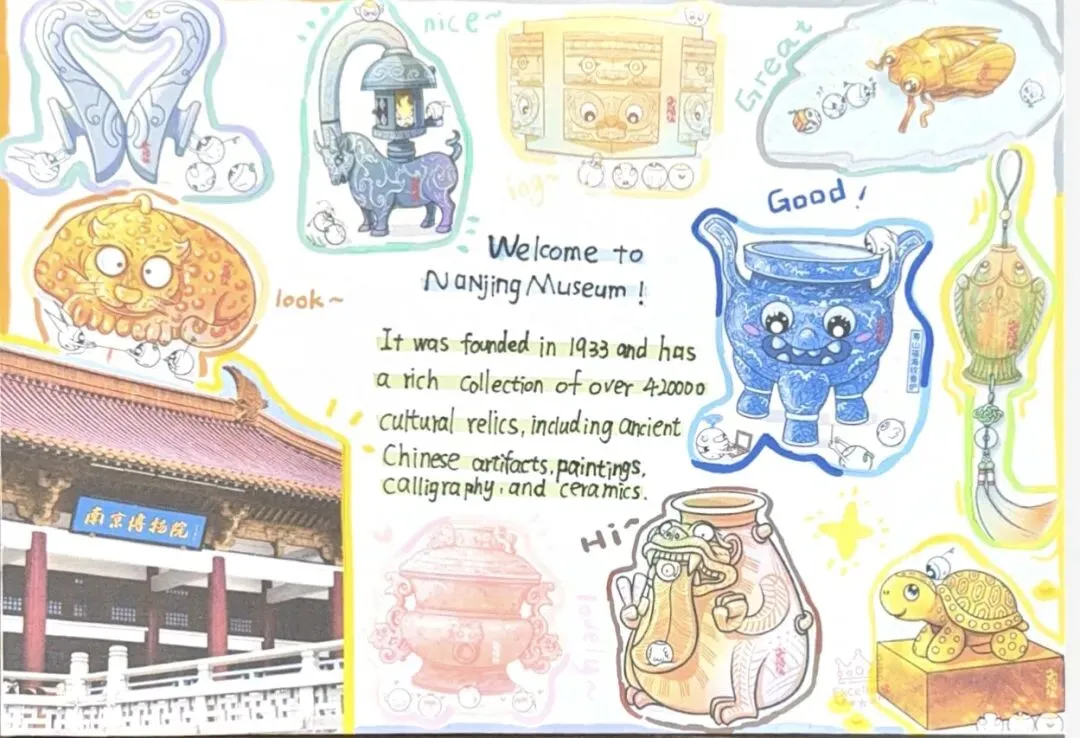 nice~
Great
ing~
Good!
look~
Welcome to
NaNjing Museum!
It was founded in 1933 and has
a rich collection of over 420000
cultural relics, including ancient
Chinese artifacts, paintings,
calligraphy, and ceramics.
南京博物院
Hi~
lovely~
Excellent